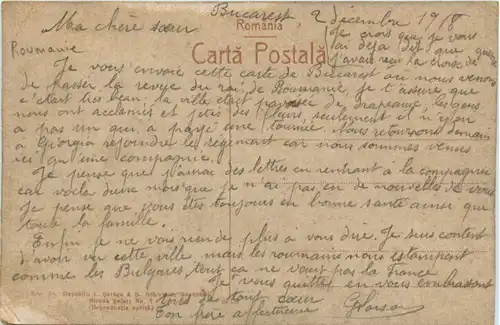 Bucarest, 2 décembre 1918
Ma chère sœur
România
Roumanie
Carta Postala
Je crois que je vous
ai déja dit que
j'avais reçu la croix de
Je vous envoie cette carte de Bucarest ou nous venons
de passer la revue du roi de Roumanie, je t'assure que
c'etait tres beau, la ville etait de drapeaux, les gens
nous ont acclamés et jetes des fleurs, seulement il n'y en
a pas un qui a payé une tournée. Nous retournons demain
à Giorgio rejoindre le regiment car nous sommes venus
ici qu'une compagnie.
Je pense que j'aurai des lettres en rentrant à la compagnie
car voila mois que je n'ai pas eu de nouvelles de vous
Je pense que vous êtes toujours en bonne santé ainsi que
toute la famille.
Enfin je ne vois rien de plus à vous dire. Je suis content
d'avoir vu cette ville, mais les roumains nous estampent
comme les Bulgares tout ça ne vaut pas la France
Je vous quitte en vous embrassant
tous de tout cœur
Ton frère affectueux